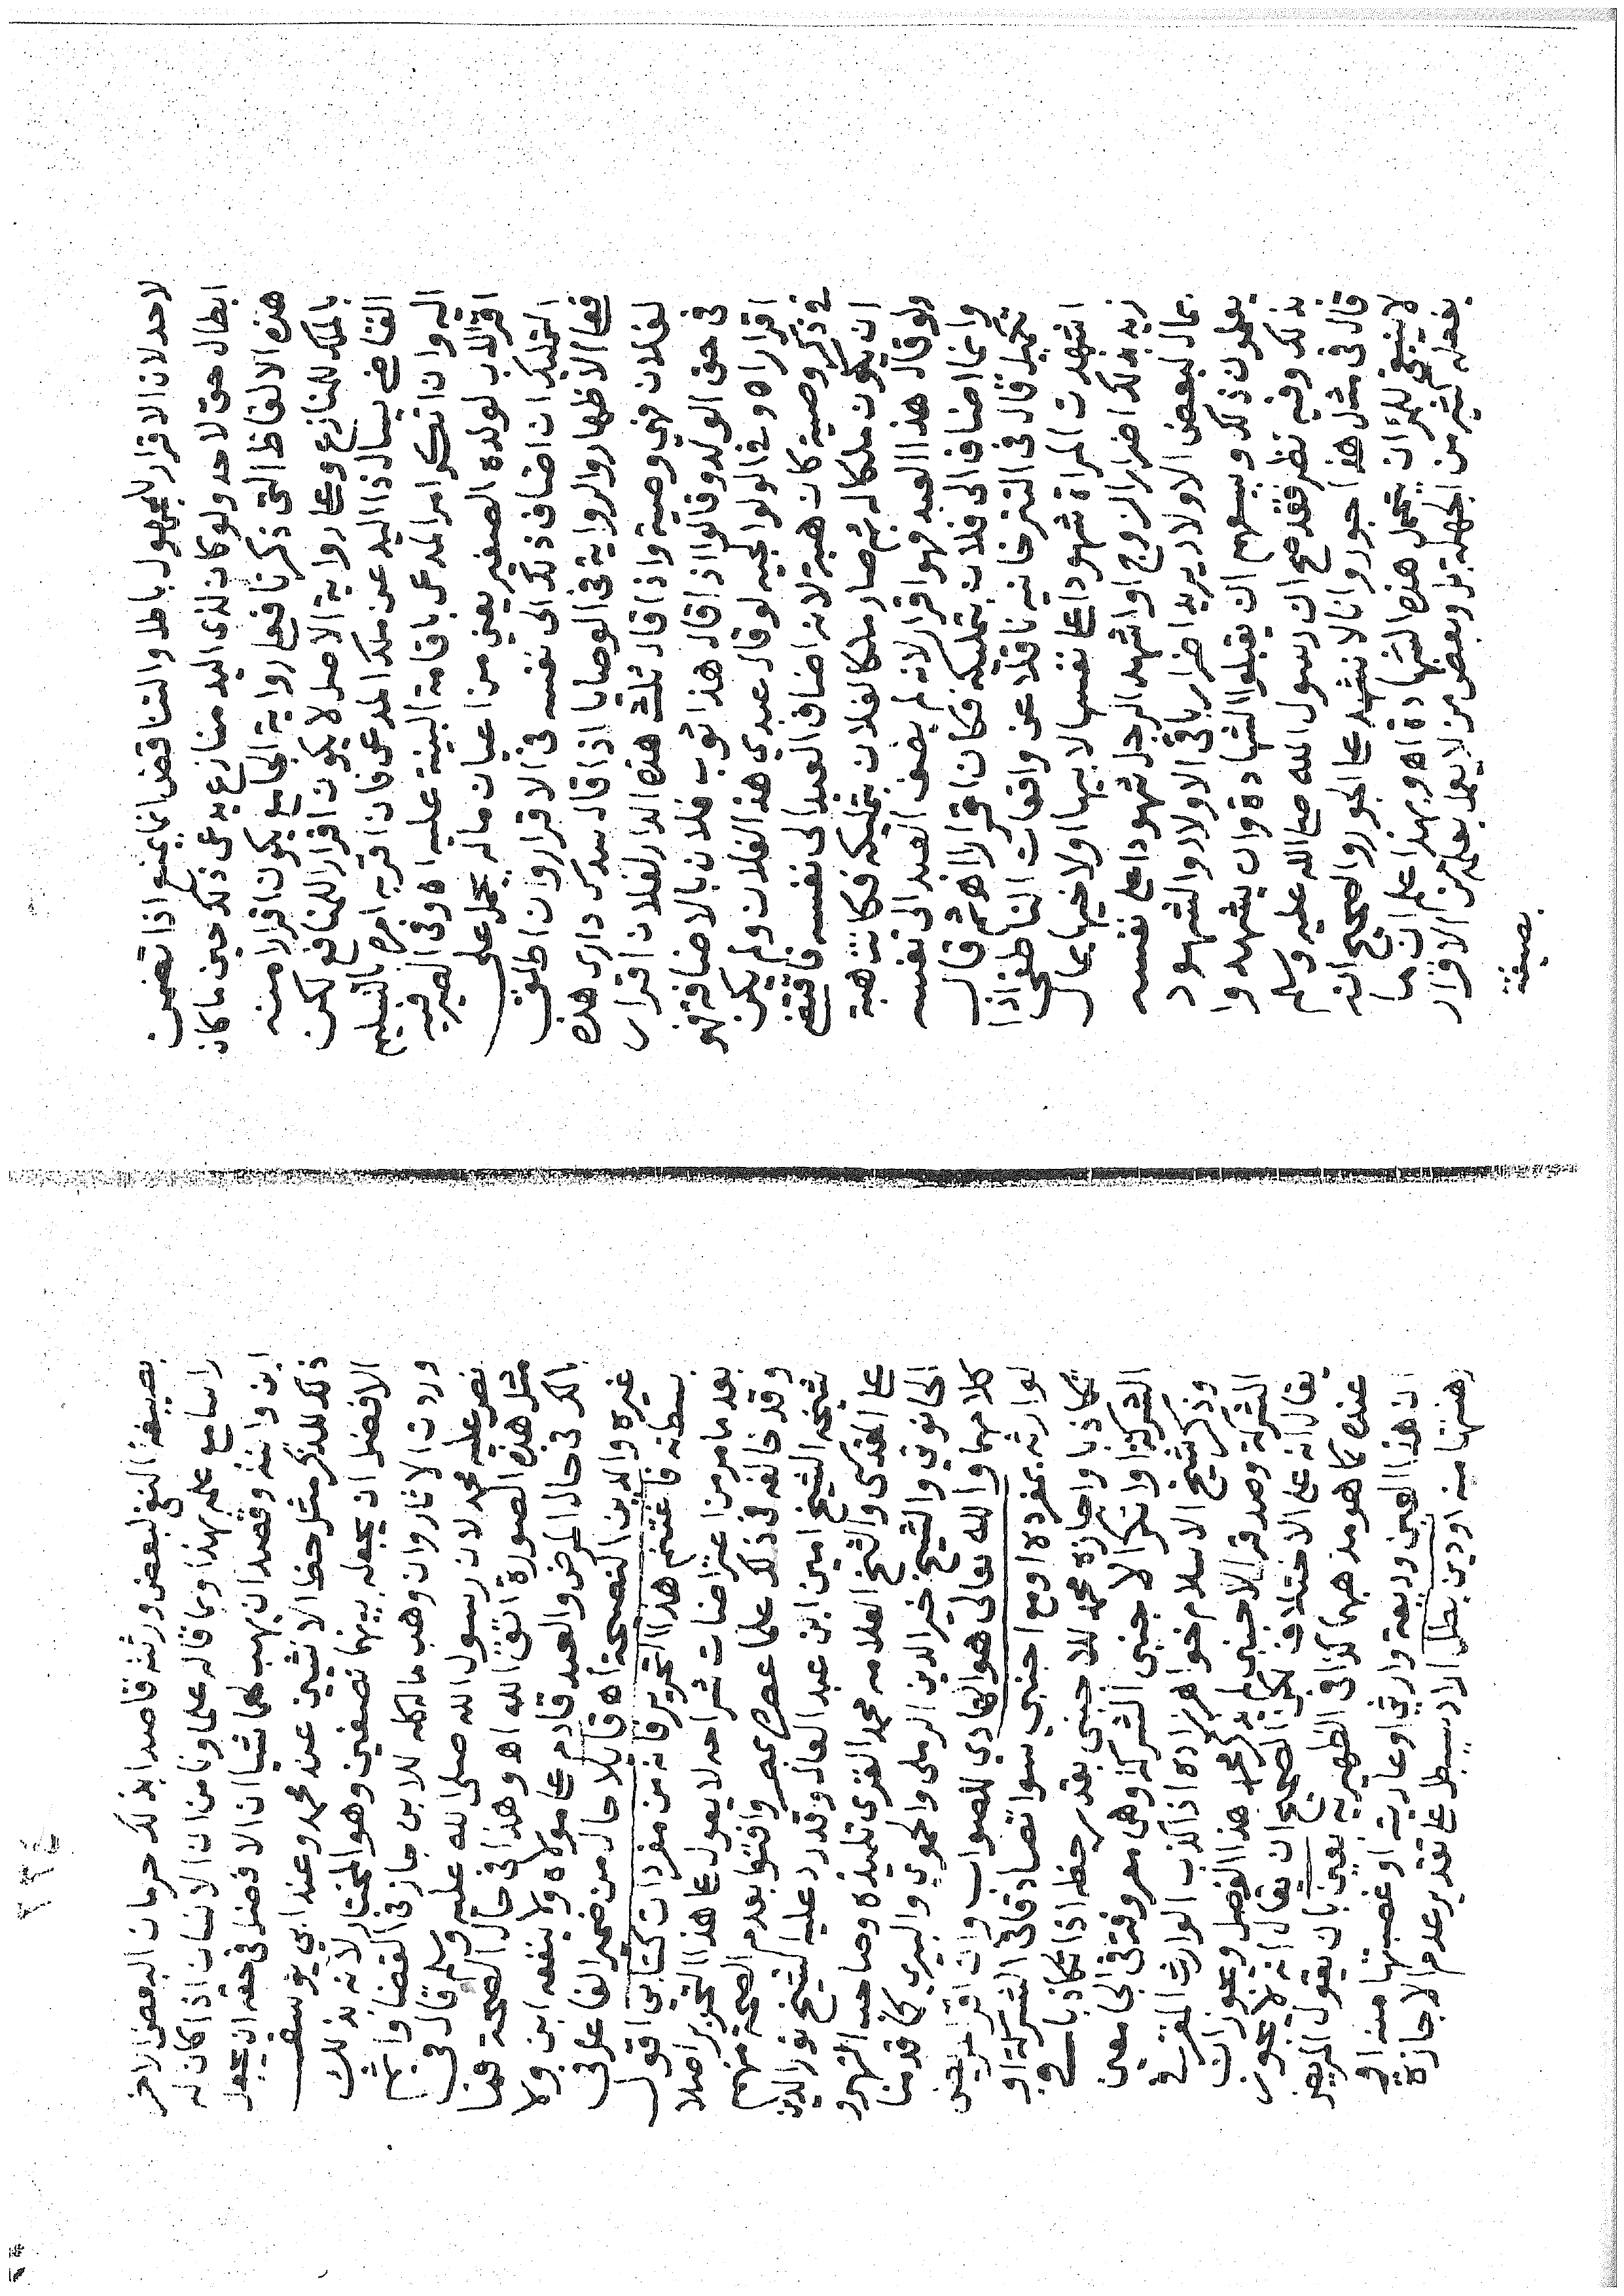 لاحد لان الاقرار للمجهول باطل والتناقض انما يمنع اذا تضمن
ابطال حق لاحد ولو كان لذى اليد منازع يدعى ذلك حين ما كان
هذه الالفاظ التى ذكرنا فعلى رواية الجامع يكون اقرارا منه
بالملك للمنازع وعلى رواية الاصل لا يكون اقرار اللمنازع لكن
القاضى يسال ذا اليد عن ملك المدعى فان اقر به امره بالتسليم
اليه وان انكر امر المدعى باقامة البينة عليه اه وفى الصيرفيه
اقر الاب لولده الصغير بعين من اعيان ماله يحمل على
التمليك ان اضاف ذلك الى نفسه فى الاقرار وان اطلق
فعلى الاظهار والرواية فى الوصايا اذا قال سدس دارى هذه
لفلان فهى وصية واذا قال ثلث هذه الدار لفلان اقرار
فى حق الولد وقالوا اذا قال هذا ثوب فلان بالاضافة فهو
اقرار اه وفى الولوالجيه لو قال عبدي هذا لفلان ولم يكن
فى ذكر وصية كان هبة لانه اضاف العبد الى نفسه فاقتضى
ان يكون ملكا له ثم صار ملكا لفلان بتمليكه فكانت هبة
ولو قال هذا العبد فهو اقرار لانه لم يضف العبد الى نفسه
وانما اضاف الى فلان بتمليكه فكان اقرارا اه ثم قال
تكميل قال فى التترخانيه ناقلا عن واقعات الناطفى اذا
اشهدت المراة شهودا على نفسها لابيها او لاخيها بمال
تريد بذلك اضرار الزوج او اشهد الرجل شهودا على نفسه
بمال لبعض الاولاد يريد اضرار باقى الاولاد والشهود
يعلمون ذلك وسيعهم ان يقبلوا الشهادة وان يشهدوا
بذلك وفيه نظر فقد صح ان رسول الله صلى الله عليه وسلم
قال فى مثل هذا جور وانا لا نشهد على الجور والصحيح انه
لا ينبغى للمرء ان يتحمل هذه الشهادة اه وبهذا علم ان ما
يفعله كثير من الجهلة بل وبعض من لا يعمل بعلمه من الاقرار
بصيغة
بصيغة النفى لبعض ورثته قاصدا بذلك حرمان البعض الاخر
راسا مع علمه بهذا وبما قاله علماونا من ان الانسان اذا كان له
ابن وابنة وقصد ان يهب لهما شيا ان الافضل فى حقه ان يجعل
ذلك للذكر مثل حظ الانثيين عند محمد وعند ابي يوسف
الافضل ان يجعله بينهما نصفين وهو المختار لانه بذلك
وردت الاثار وان وهب ماله كله للابن جاز فى القضا واثم
نص عليه محمد لان رسول الله صلى الله عليه وسلم قال فى
مثل هذه الصورة اتق الله اه وهذا فى حال الصحة فما
بالك فى حال المرض والعبد قادم على مولاه ولا ينفعه ابن ولا
غيره والدين النصيحة اه قايلا حال من ضمير الفاعل فى
بسطنه فاغتنم هذا التحرير فانه من مفردات كتابي اقول
بعد ما مر من اعتراضات شراحه لا يعول على هذا التحرير اصلا
وقد خالفه فى ذلك علما عصره بمصر وافتوا بعدم الصحة منهم
شيخه الشيخ امين ابن عبد العال وقد رد عليه الشيخ نور الدين
على المقدسى والشيخ العلامه محمد الغزى تلميذه وصاحب النهر و
الحانوتى والشيخ خير الدين الرملى والحموي والبيري كما قدمنا
كلامهما والله تعالى هو الهادي للصواب وان اقر المريض
لوارثه بمفرده او مع اجنبي سوا تصادقا فى الشركة او
تكاذبا واجازه محمد للاجنبى بقدر حظه اذا تكاذبا فى
الشركة او انكر الاجنبى الشركة وهى معروفة فى الجامعين
وذكر شيخ الاسلام خواهر زاده اذا كذب الوارث المقر فى
الشركة وصدقه الاجنبى لم يذكر محمد هذا الفصل ويجوز ان
يقال انه على الاختلاف لكن الصحيح ان يقال انه لا يجوز
عنده كما هو مذهبهما كذا فى الظهيريه بعين بان يقول المريض
ان هذا العين وديعة وارثي او عاريته او غصبتها منه او
رهنتها منه او دين بطل الا رد سيبطل على تقدير عدم الاجازة
٢٣٤